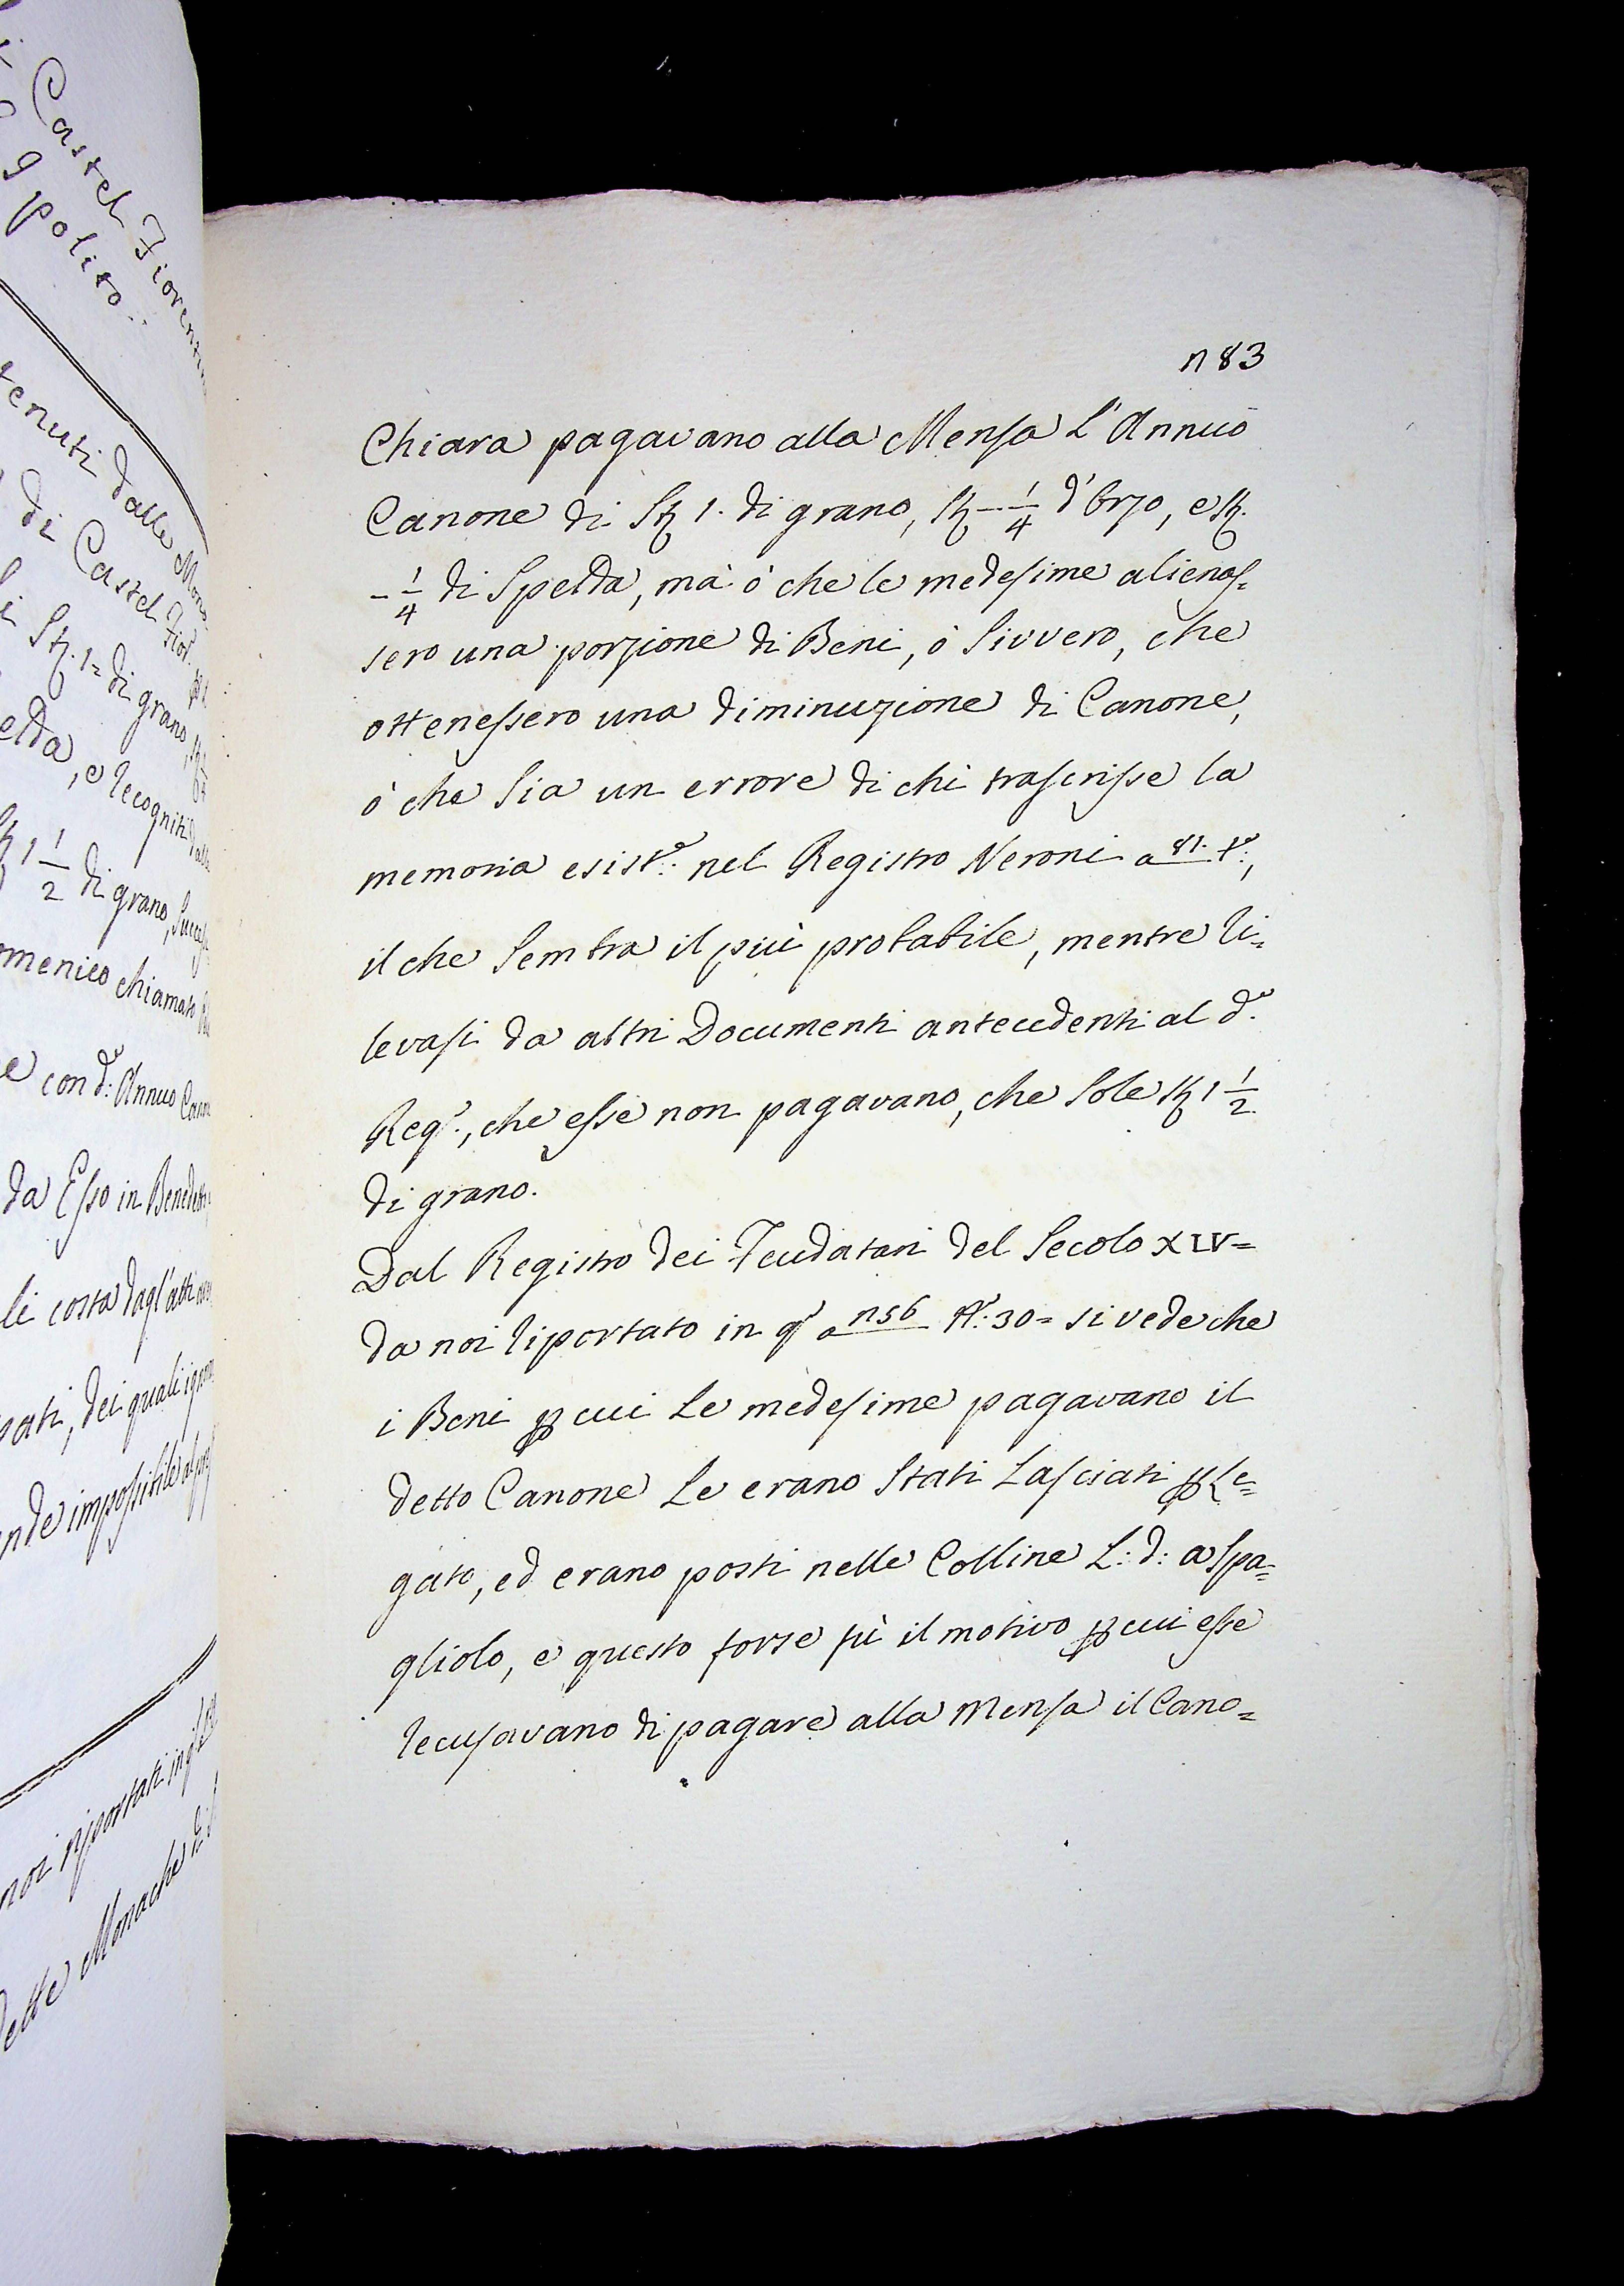 Castel Fiorentin
polito..
tenuti dalle Mon
di Castel Fior.
i St. 1= di grano, St
elda, e recogniti dalle
1 1/2 di grano, Succes
omenico chiamato
e con d.o: Annuo Cano
da Esso in Benedett
li costa dagl'atti
pati, dei quali ignor
nde impossibile
noi riportati in q.
dette Monache di
n 83
Chiara pagavano alla Mensa L'Annuo
Canone di St 1. di grano, St -- 1/4 d'Orzo, e St.
- 1/4 di Spelda, mà ò che le medesime alienas=
sero una porzione di Beni, ò Sivvero, che
ottenessero una diminuzione di Canone,
ò che Sia un errore di chi trascrisse la
memoria esist.e: nel Registro Neroni a 81. t.o:,
il che Sembra il più probabile, mentre ri=
levasi da altri Documenti antecedenti al d.o
Reg.o, che esse non pagavano, che Sole St 1 1/2
di grano.
Dal Registro dei Feudatari del Secolo XIV=
da noi riportato in q.o a n56 N.o: 30= si vede che
i Beni p cui Le medesime pagavano il
detto Canone Le erano Stati Lasciati p Le=
gato, ed erano posti nelle Colline L: d: a Spa=
gliolo, e questo forse fù il motivo p cui esse
recusavano di pagare alla Mensa il Cano=